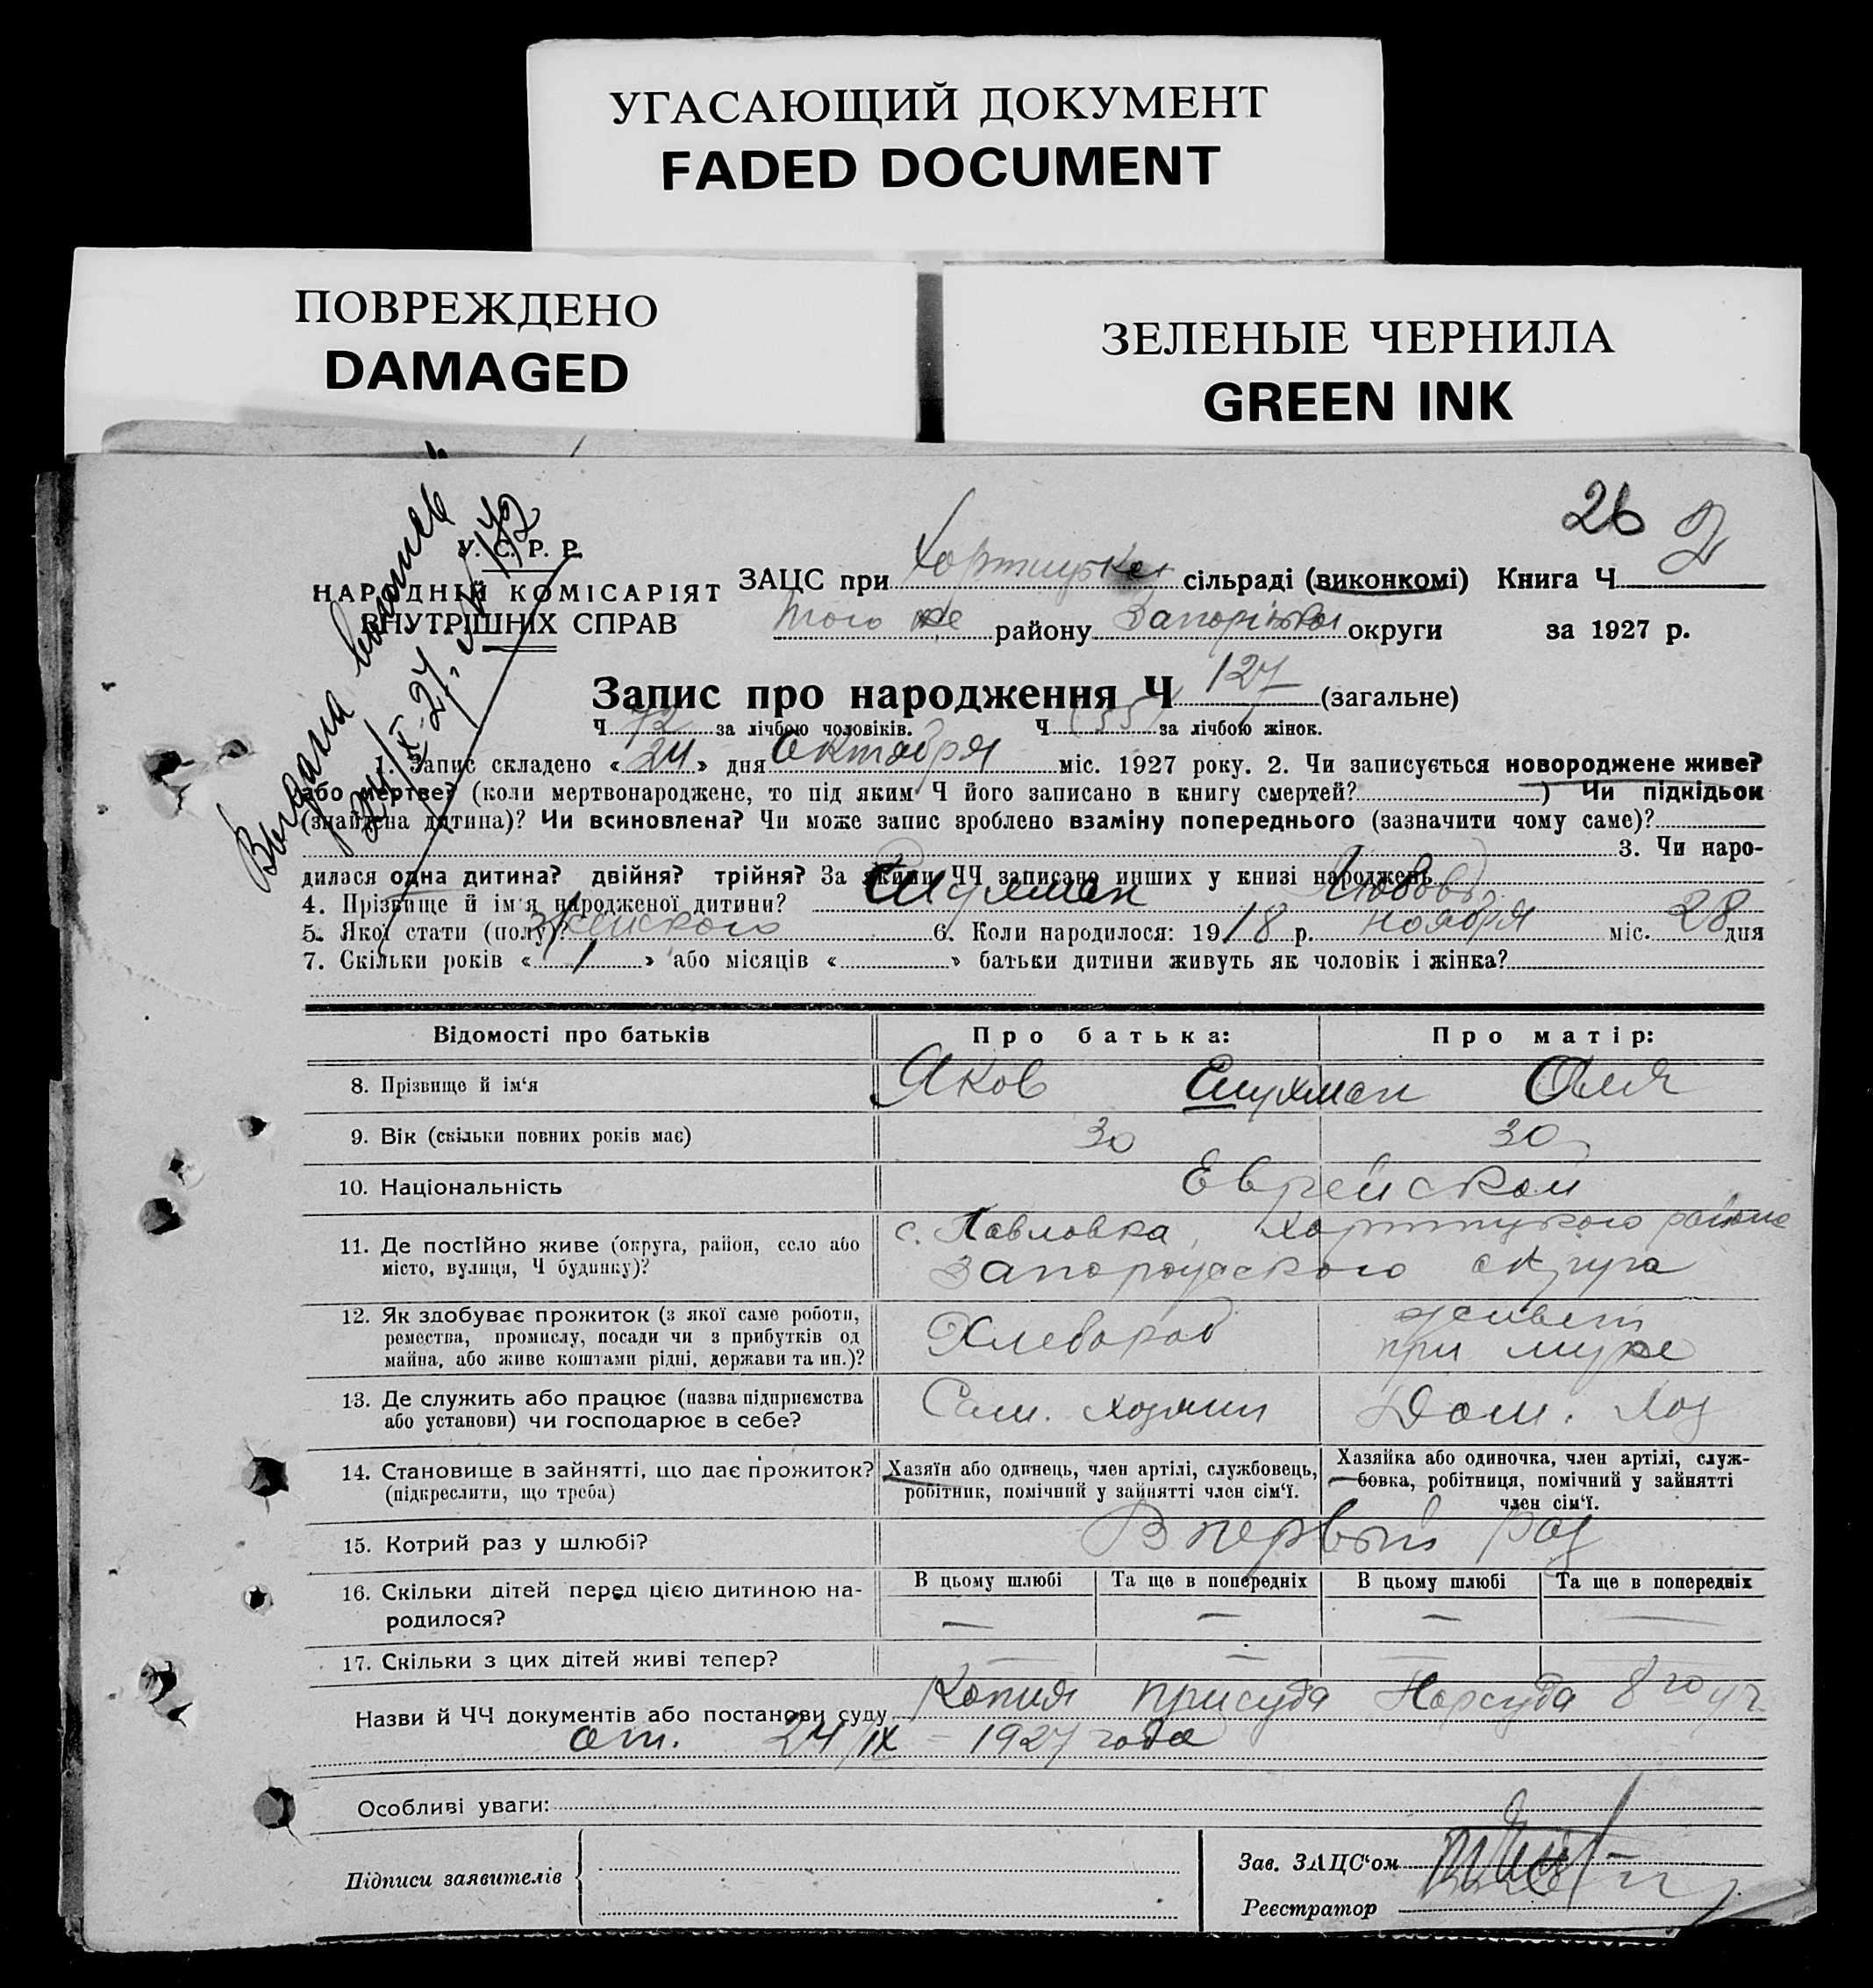 УГАСАЮЩИЙ ДОКУМЕНТ
FADED DOCUMENT
ПОВРЕЖДЕНО
DAMAGED
ЗЕЛЕНЫЕ ЧЕРНИЛА
GREEN INK
26 2
У. С. Р. Р.
НАРОДНІЙ КОМІСАРІЯТ
ВНУТРІШНІХ СПРАВ
Выдана
ЗАЦС при сільраді (виконкомі) Книга Ч
того же району округи за 1927 р.
Запис про народження Ч 127 (загальне)
Ч 72 за лічбою чоловіків. Ч (55) за лічбою жінок.
1. Запис складено « 24 » дня Октября міс. 1927 року. 2. Чи записується новороджене живе?
або мертве? (коли мертвонароджене, то під яким Ч його записано в книгу смертей? ) Чи підкідьок
(знайдена дитина)? Чи всиновлена? Чи може запис зроблено взаміну попереднього (зазначити чому саме)?
3. Чи наро-
дилася одна дитина? двійня? трійня? За якими ЧЧ записано инших у книзі народжень
4. Прізвище й ім'я народженої дитини? Шухман Любовь
5. Якої стати (полу)? женского 6. Коли народилося: 19 18 р. ноября міс. 28 дня
7. Скільки років « 1 » або місяців « » батьки дитини живуть як чоловік і жінка?
Відомості про батьків Про батька: Про матір:
8. Прізвище й ім'я Яков Шухман Оля
9. Вік (скільки повних років має) 30 30
10. Національність Еврейской
11. Де постійно живе (округа, район, село або с. Павловка, Хортицкого района
місто, вулиця, Ч будинку)? Запорожского округа
12. Як здобуває прожиток (з якої саме роботи, Хлебороб живет
ремества, промислу, посади чи з прибутків од при муже
майна, або живе коштами рідні, держави та ин.)?
13. Де служить або працює (назва підприємства Сам. хозяин Дом. хоз
або установи) чи господарює в себе?
14. Становище в зайнятті, що дає прожиток? Хазяїн або одинець, член артілі, службовець, Хазяйка або одиночка, член артілі, служ-
(підкреслити, що треба) робітник, помічний у зайнятті член сім'ї. бовка, робітниця, помічний у зайнятті
член сім'ї.
15. Котрий раз у шлюбі? В первый раз
16. Скільки дітей перед цією дитиною на- В цьому шлюбі Та ще в попередніх В цьому шлюбі Та ще в попередніх
родилося? — — — —
17. Скільки з цих дітей живі тепер? — — — —
Назви й ЧЧ документів або постанови суду Копия присуда Нарсуда 8го уч.
от. 24/IX - 1927 года
Особливі уваги:
Підписи заявителів
Зав. ЗАЦС'ом
Реєстратор